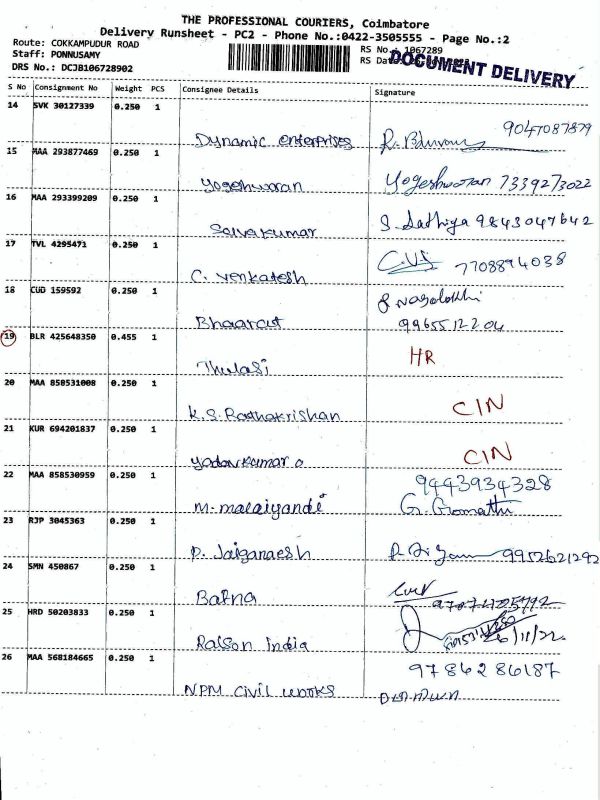 THE PROFESSIONAL COURIERS, Coimbatore
Delivery Runsheet - PC2 - Phone No.:0422-3505555 - Page No.:2
Route: COKKAMPUDUR ROAD
Staff: PONNUSAMY
DRS No.: DCJB106728902
RS No.: 1067289
RS Dat
DOCUMENT DELIVERY
S No Consignment No Weight PCS Consignee Details Signature
14 SVK 30127339 0.250 1
Dynamic enterprises R. 9047087879
15 MAA 293877469 0.250 1
Yogeshwaran Yogeshwaran 7339273022
16 MAA 293399209 0.250 1
Selvakumar S. Sathiya 9843047642
17 TVL 4295471 0.250 1
C. Venkatesh C.V. 7708894038
18 CUD 159592 0.250 1
Bhaarat 9965512204
19 BLR 425648350 0.455 1
Thulasi HR
20 MAA 858531008 0.250 1
K.S. Radhakrishan CIN
21 KUR 694201837 0.250 1
Yadavkumar CIN
22 MAA 858530959 0.250 1
M. malaiyandi 9443934328
G. Gomathi
23 RJP 3045363 0.250 1
P. Jaiganaesh 9952621292
24 SMN 450867 0.250 1
Bafna
25 HRD 50203833 0.250 1
Ralson India 6/11/22
26 MAA 568184665 0.250 1
NPM Civil works 9786286187